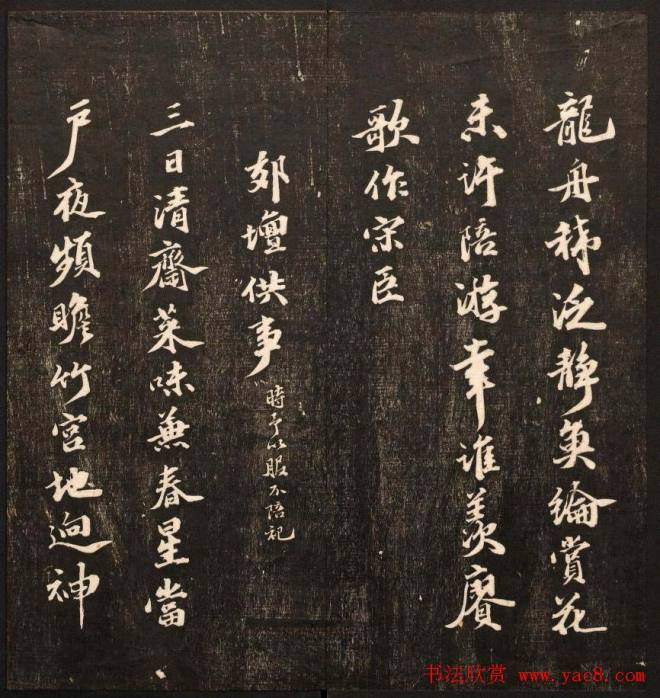 龍舟稀泛靜綸賞花
未許陪游幸誰羨賡
歌作宋臣
郊壇供事 時予以服不陪祀
三日清齋菜味兼春星當
戶夜頻瞻竹宮地迥神
书法欣赏 www.yac8.com